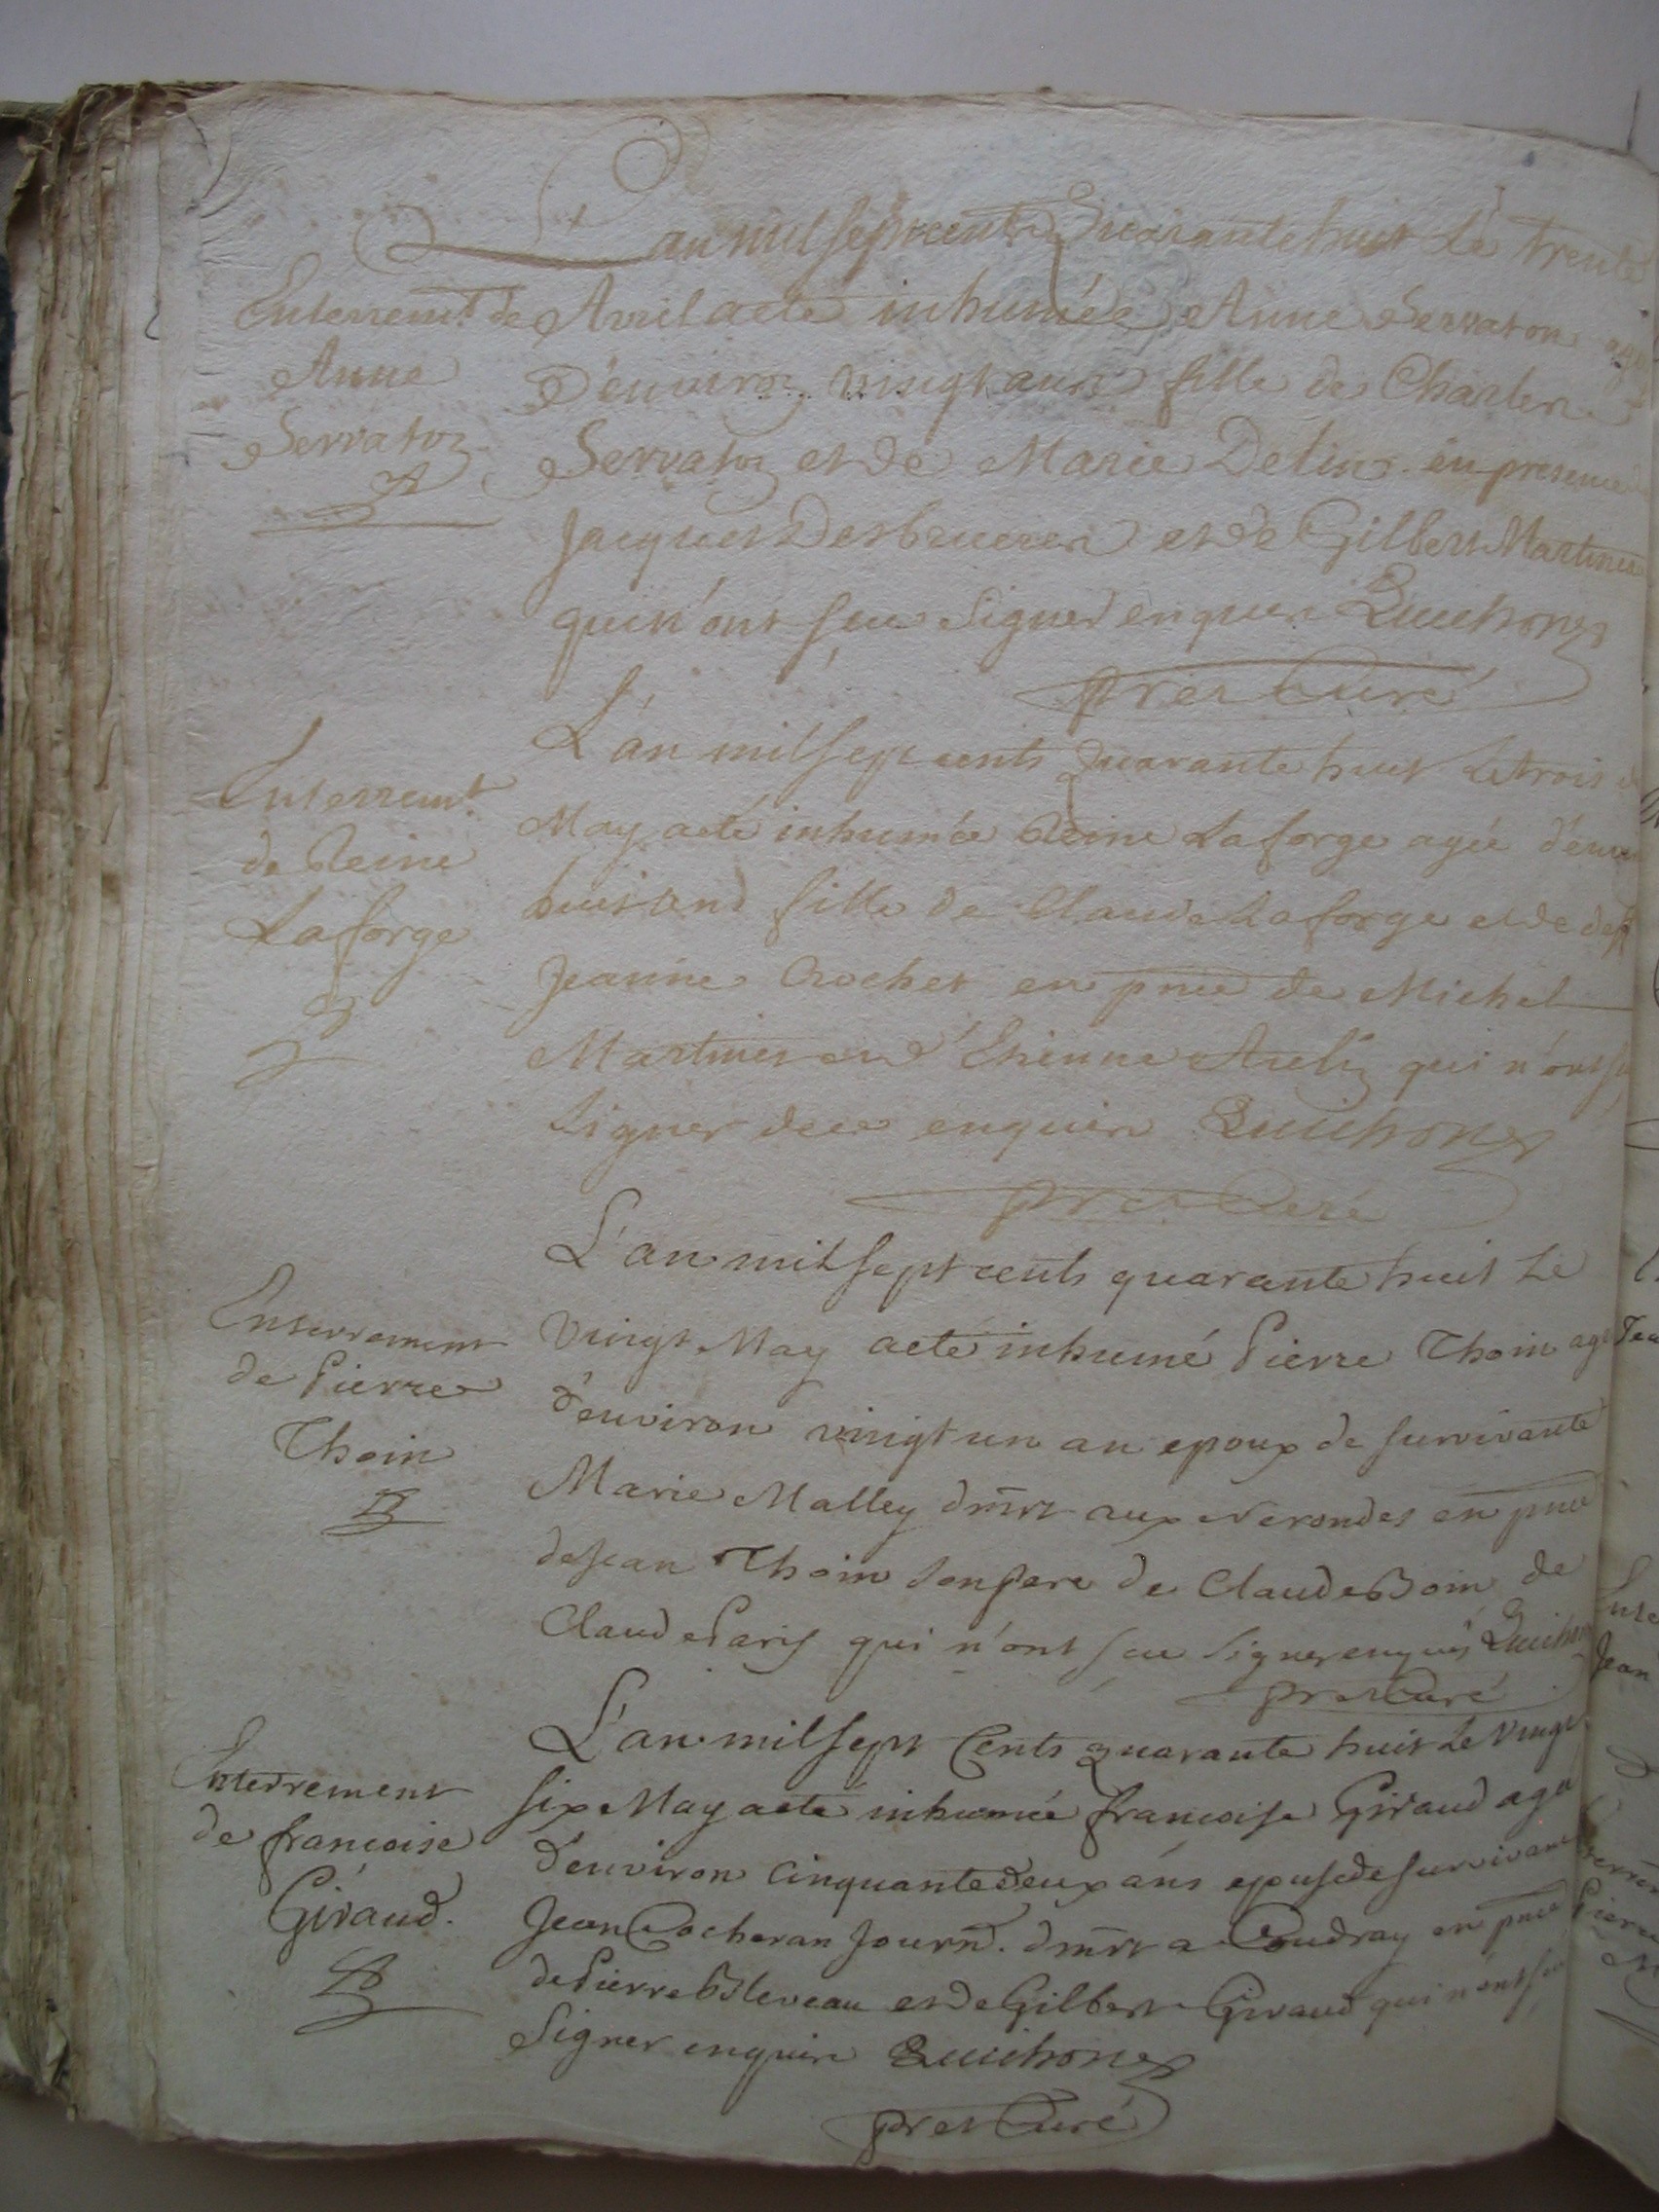 L'an mil sept cents Quarante huit Le trente
Enterremt. de
Anne
Servaton
Avril a eté inhumée Anne Servaton agée
D'environ vingt ans fille de Charles
Servaton et de Marie Delin en presence de
Jacques Desbrueres et de Gilbert Martinet
qui n'ont sceu Signer enquis
pres Curé
L'an mil sept cents Quarante huit Le trois de
Enterremt.
de Reine
Laforge
May a eté inhumée Reine Laforge agée d'environ
huit ans fille de Claude Laforge et de deffte
Jeanne Crochet en pnce de Michel
Martinet et d'Etienne qui n'ont sceu
Signer de ce enquis
pres Curé
L'an mil sept cents quarante huit Le
Enterrement
de Pierre
Thoin
vingt May a eté inhumé Pierre Thoin agé
d'environ vingt un an epoux de survivante
Marie Malley dmrt aux Nerondes en pnce
de Jean Thoin son pere de Claude Boin de
Claude Paris qui n'ont sceu Signer enquis
pres Curé
L'an mil sept Cents quarante huit Le vingt
Enterrement
de francoise
Giraud.
six May a eté inhumée francoise Giraud agée
d'environ cinquante deux ans epouse de survivant
Jean Cocheran Journr. dmrt a Coudray en pnce
de Pierre Bleveau et de Gilbert Giraud qui n'ont sceu
Signer enquis
pres Curé